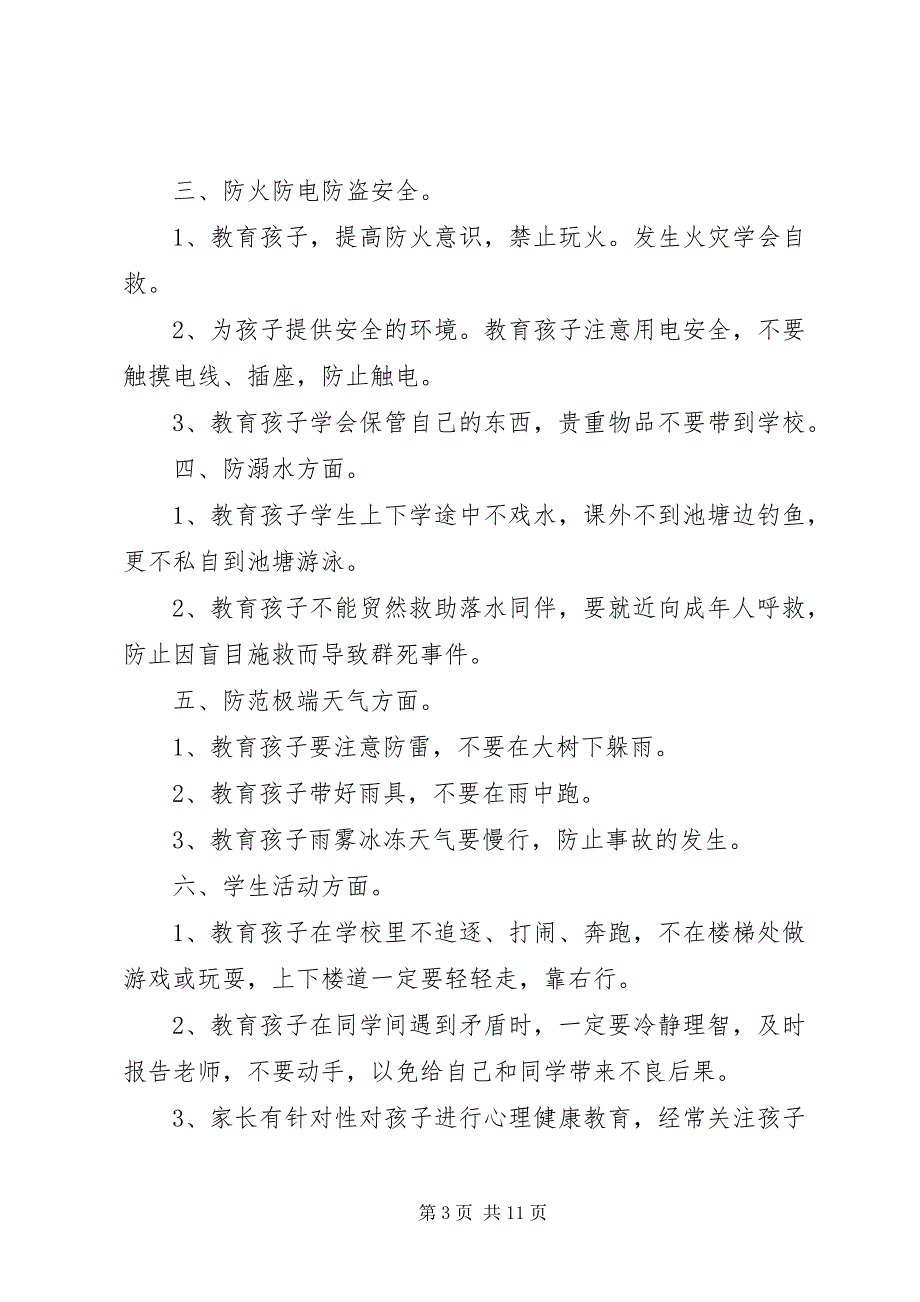 三、防火防电防盗安全。
1、教育孩子，提高防火意识，禁止玩火。发生火灾学会自
救。
2、为孩子提供安全的环境。教育孩子注意用电安全，不要
触摸电线、插座，防止触电。
3、教育孩子学会保管自己的东西，贵重物品不要带到学校。
四、防溺水方面。
1、教育孩子学生上下学途中不戏水，课外不到池塘边钓鱼，
更不私自到池塘游泳。
2、教育孩子不能贸然救助落水同伴，要就近向成年人呼救，
防止因盲目施救而导致群死事件。
五、防范极端天气方面。
1、教育孩子要注意防雷，不要在大树下躲雨。
2、教育孩子带好雨具，不要在雨中跑。
3、教育孩子雨雾冰冻天气要慢行，防止事故的发生。
六、学生活动方面。
1、教育孩子在学校里不追逐、打闹、奔跑，不在楼梯处做
游戏或玩耍，上下楼道一定要轻轻走，靠右行。
2、教育孩子在同学间遇到矛盾时，一定要冷静理智，及时
报告老师，不要动手，以免给自己和同学带来不良后果。
3、家长有针对性对孩子进行心理健康教育，经常关注孩子
第 3 页 共 11 页